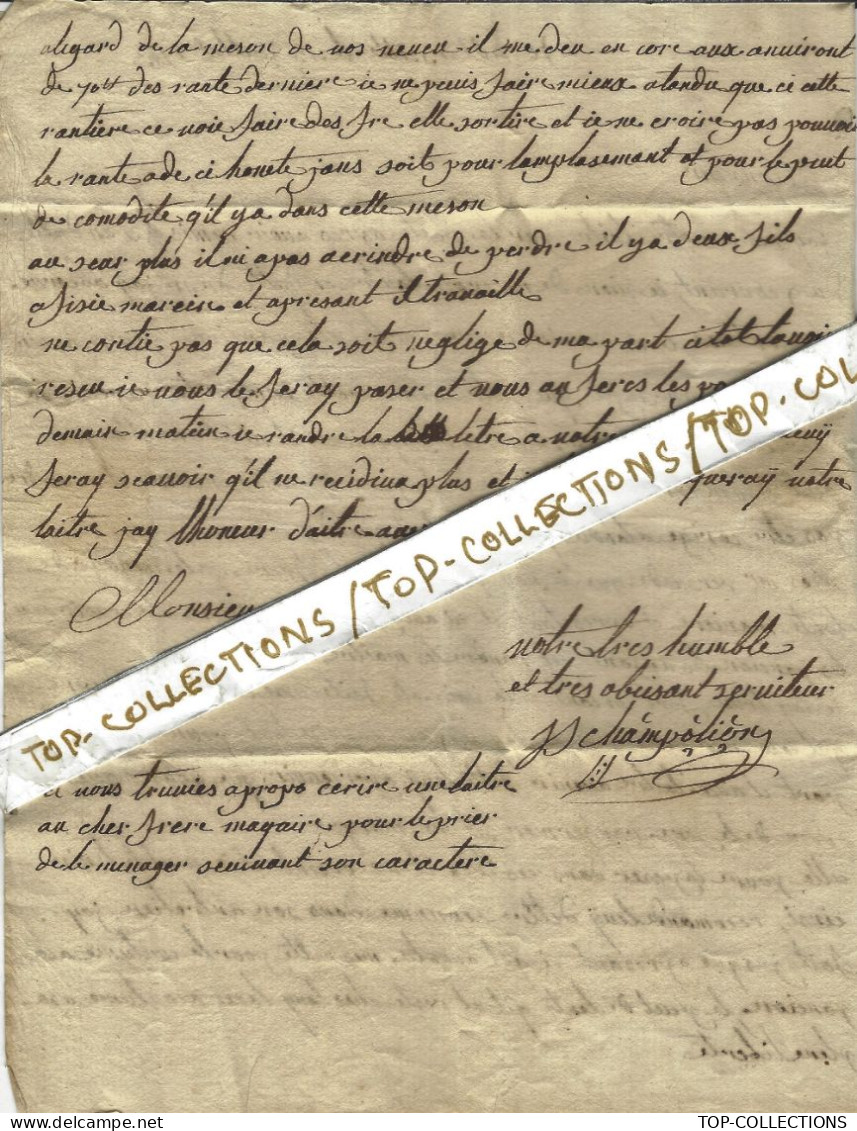 alegard de la meson de vos neveu il me deu en core aux anviront
de 70tt des rante derniere ie ne puis faire mieux atandu que ci cette
rantière ce voie faire des fre elle sortire et ie ne croire pas pouvoir
la rante a de ci honete jans soit pour lamplasement et pour le peut
de comodite q'il ya dans cette meson
au seur plus il ni a pas a crindre de perdre il ya deux fils
a sisie mareir et apresant il travaille
ne contie pas que cela soit neglige de ma part citot lavoir
reseu ie vous le feray paser et vous anferes les
demain matein ie randre la letre a votre
feray scavoir q'il ne recidiva plus et queray votre
laitre jay lhoneur d'aitre avec
Monsieur
votre tres humble
et tres obeisant serviteur
JS champoliòn
vous truvies apropo cerire une laitre
au cher frere magaire pour le prier
de le menager seuivant son caractere
TOP-COLLECTIONS / TOP-COLLECTIONS / TOP-COL
TOP-COLLECTIONS